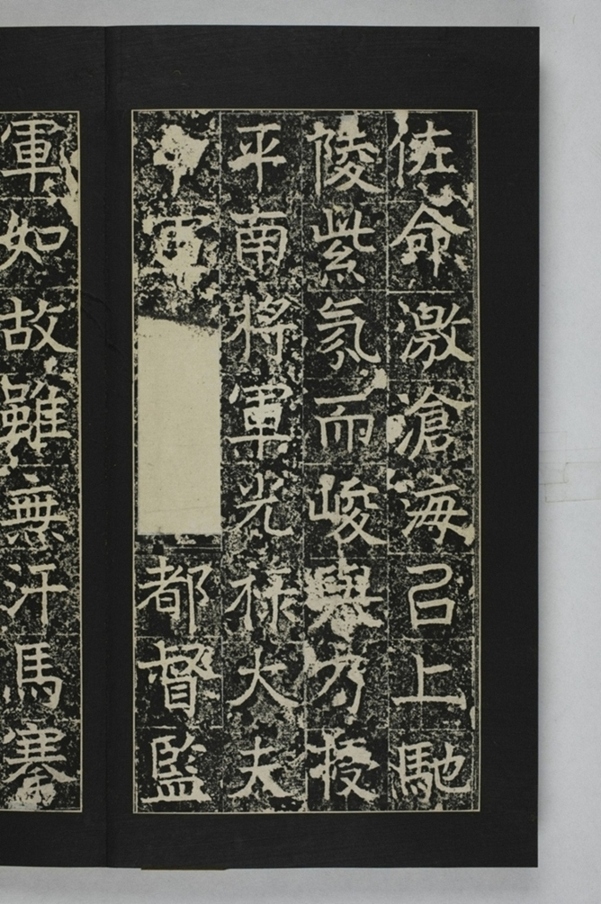 佐命激滄海㠯上馳
陵紫氛而峻舉方授
平南將軍光祿大夫
軍
都督監
軍如故雖無汗馬搴